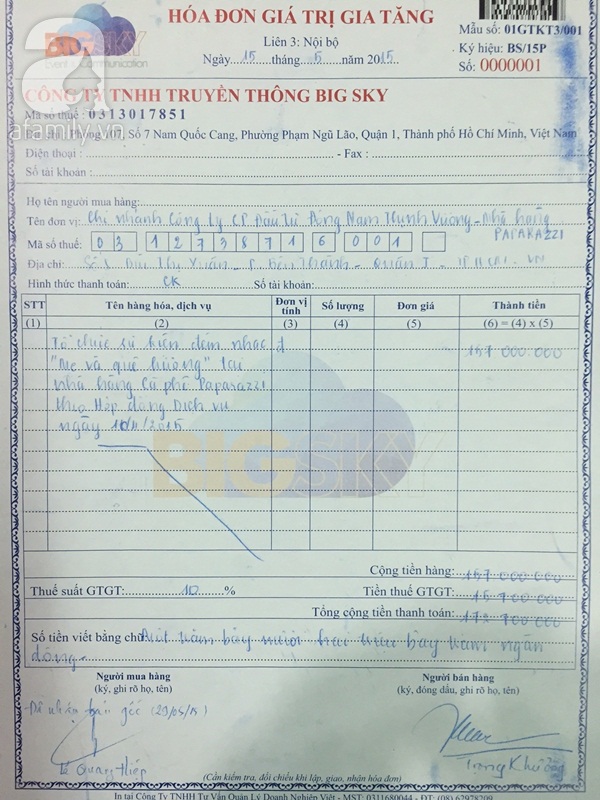 HÓA ĐƠN GIÁ TRỊ GIA TĂNG
Mẫu số: 01GTKT3/001
Liên 3: Nội bộ
Ký hiệu: BS/15P
Ngày 15 tháng 5 năm 2015
Số: 0000001
BIG SKY
Event - Communication
afamily.vn
CÔNG TY TNHH TRUYỀN THÔNG BIG SKY
Mã số thuế : 0313017851
Phòng 107, Số 7 Nam Quốc Cang, Phường Phạm Ngũ Lão, Quận 1, Thành phố Hồ Chí Minh, Việt Nam
Điện thoại : - Fax :
Số tài khoản :
Họ tên người mua hàng:
Tên đơn vị: Chi nhánh Công ty CP Đầu tư Nam Thịnh Vượng - Nhà hàng
PAPARAZZI
Mã số thuế: 03 12738716 001
Địa chỉ: Bùi Thị Xuân - P. Bến Thành - Quận I - TP HCM - VN
Hình thức thanh toán: CK Số tài khoản:
STT Tên hàng hóa, dịch vụ Đơn vị tính Số lượng Đơn giá Thành tiền
(1) (2) (3) (4) (5) (6) = (4) x (5)
Tổ chức sự kiện đêm nhạc 157 000.000
"Mẹ và quê hương" tại
nhà hàng Cà phê Paparazzi
theo Hợp đồng Dịch vụ
ngày /2015
BIG SKY
Cộng tiền hàng: 157 000 000
Thuế suất GTGT: 10 % Tiền thuế GTGT: 15 700 000
Tổng cộng tiền thanh toán: 172 700 000
Số tiền viết bằng chữ: Một trăm bảy mươi hai triệu bảy trăm ngàn
đồng
Người mua hàng Người bán hàng
(ký, ghi rõ họ, tên) (ký, đóng dấu, ghi rõ họ, tên)
Đã nhận bản gốc (29/05/15)
Quang Hiệp
Trọng Khương
(Cần kiểm tra, đối chiếu khi lập, giao, nhận hóa đơn)
In tại Công Ty TNHH Tư Vấn Quản Lý Doanh Nghiệp Việt - MST: 0311680044 - ĐT: